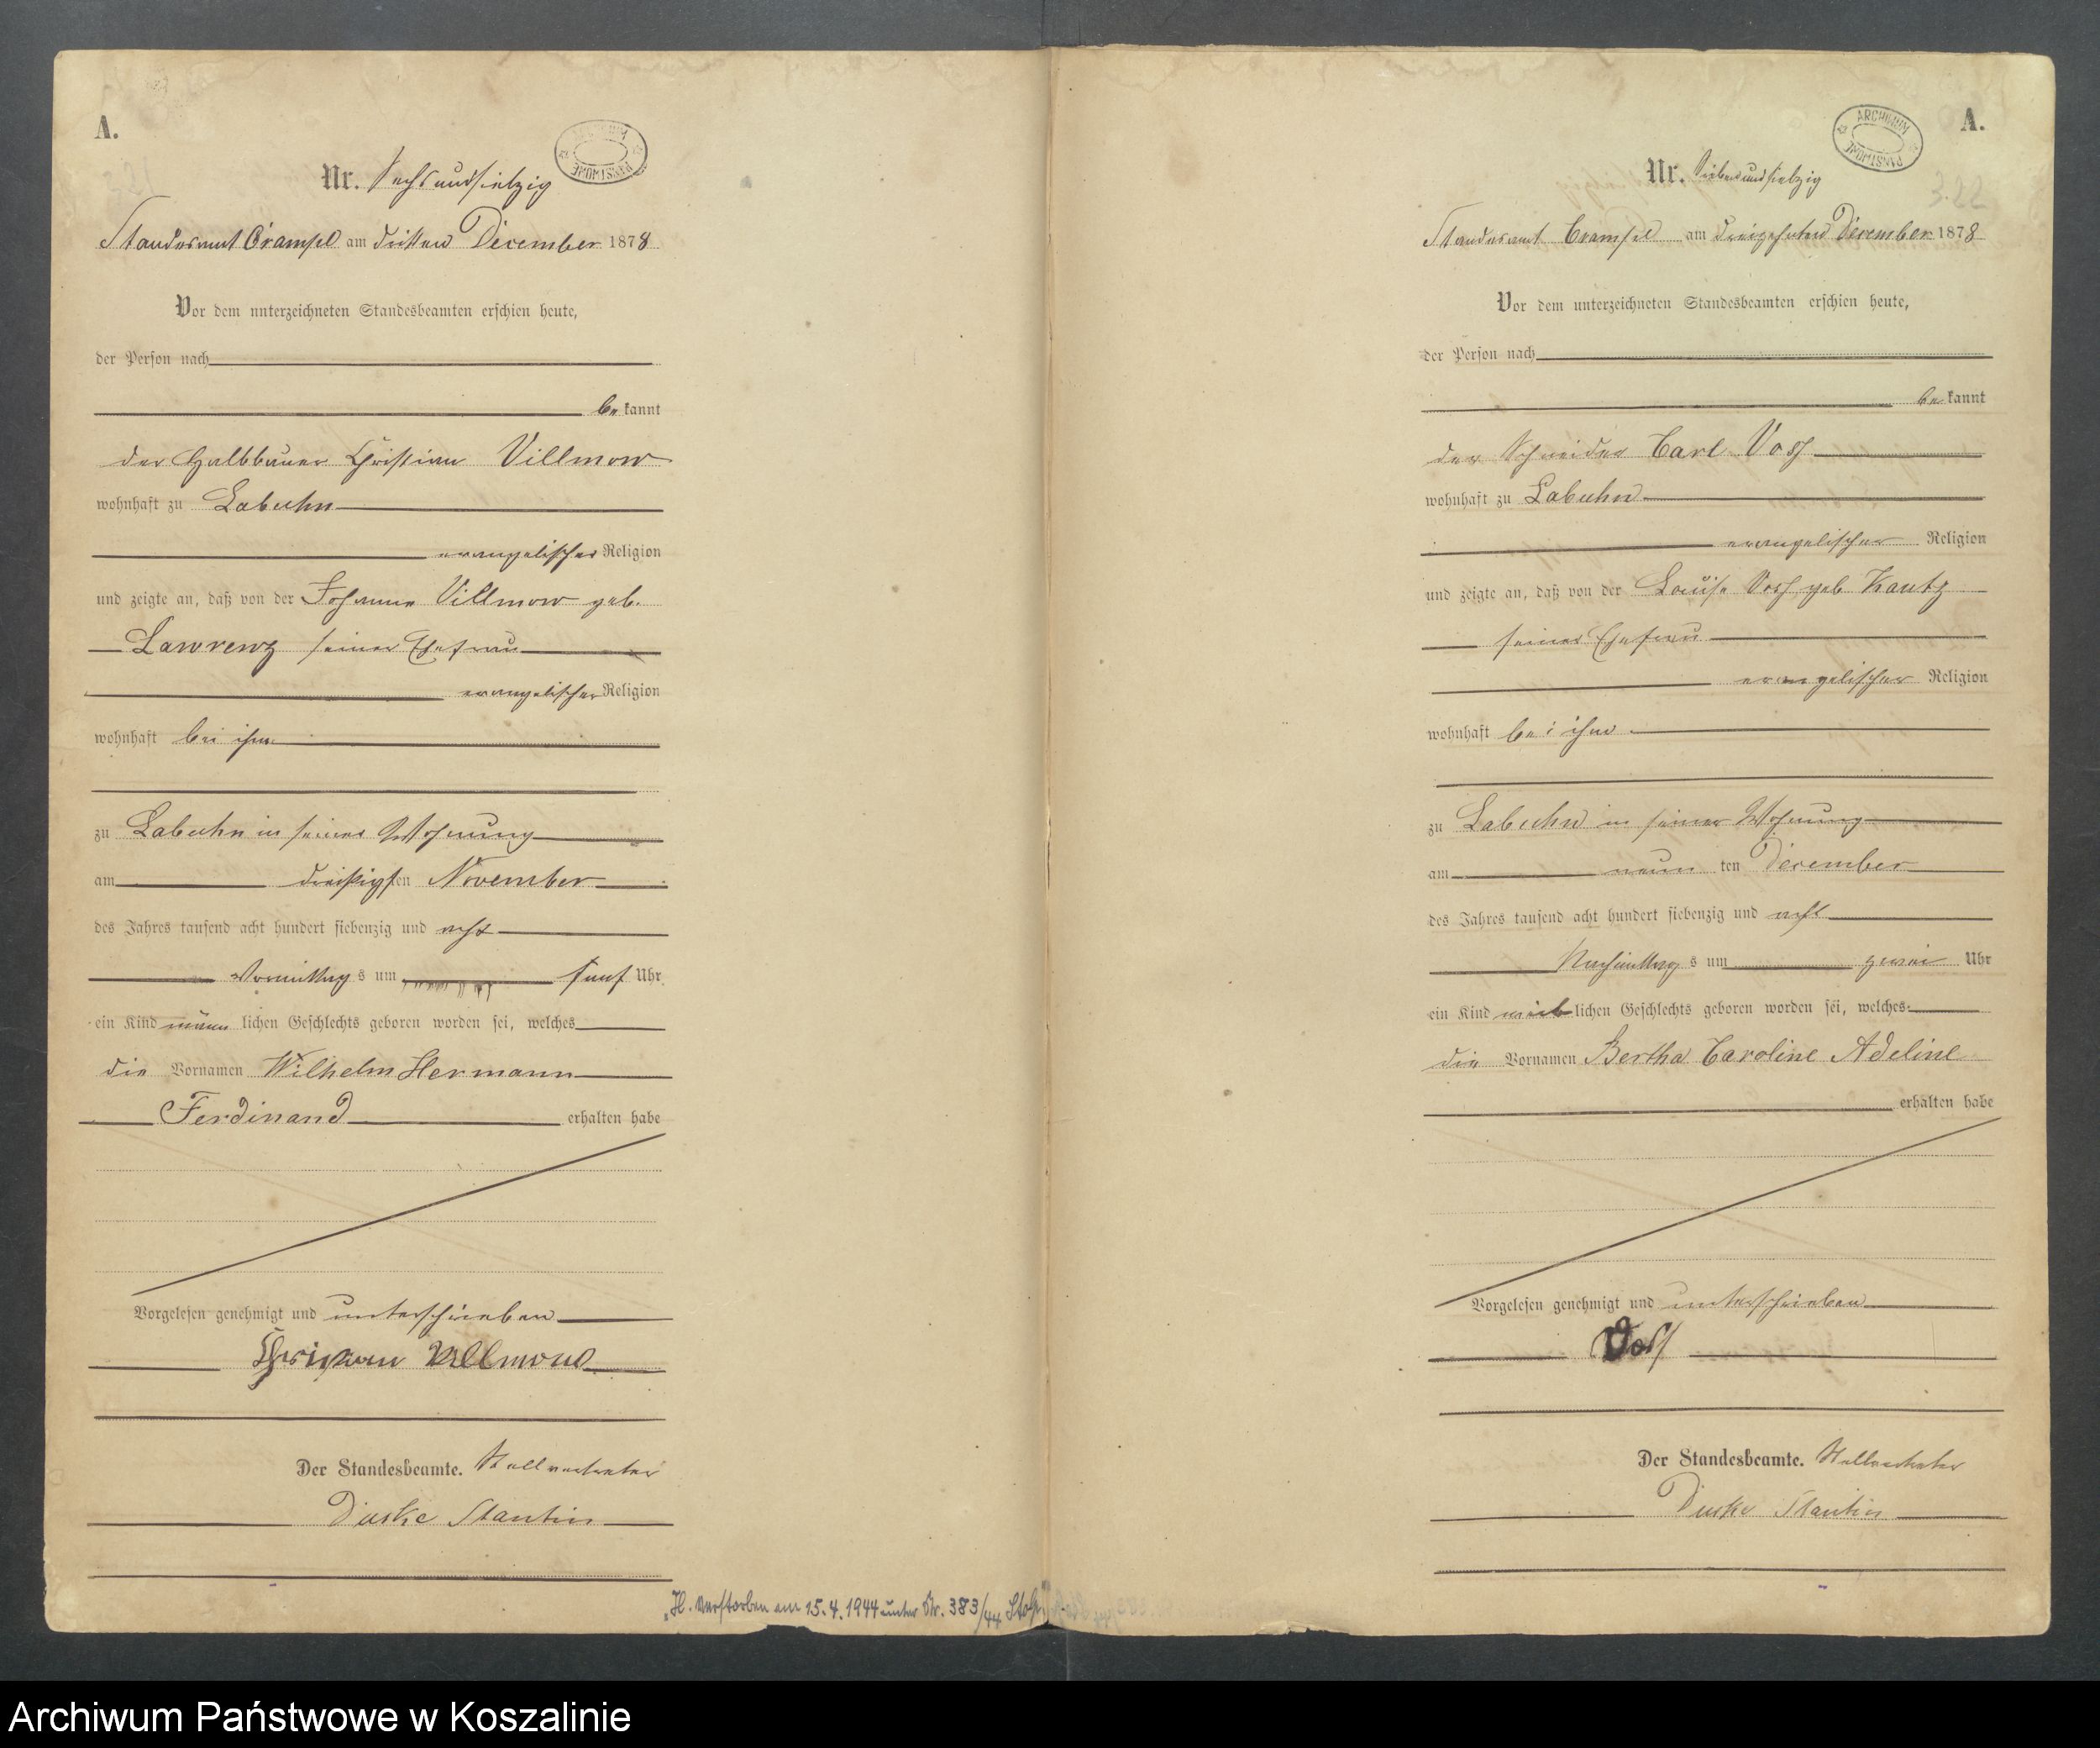 A.
Nr. Sechsundsiebzig
ARCHIWUM PAŃSTWOWE
Standesamt Crampel am dritten December 1878
Vor dem unterzeichneten Standesbeamten erschien heute,
der Person nach
bekannt
der Halbbauer Christian Villmow
wohnhaft zu Labuhn
evangelischer Religion
und zeigte an, daß von der Johanne Villmow geb.
Lawrenz seiner Ehefrau
evangelischer Religion
wohnhaft bei ihm
zu Labuhn in seiner Wohnung
am dreißigsten November
des Jahres tausend acht hundert siebenzig und acht
Vormittags um fünf Uhr
ein Kind männlichen Geschlechts geboren worden sei, welches
die Vornamen Wilhelm Hermann
Ferdinand erhalten habe
Vorgelesen genehmigt und unterschrieben
Christian Villmow
Der Standesbeamte. Stellvertreter
Duske
H. Verstorben am 15.4.1944 unter Nr. 383/44
A.
ARCHIWUM PAŃSTWOWE
Nr. Siebenundsiebzig
322
Standesamt Crampel am dreizehnten December 1878
Vor dem unterzeichneten Standesbeamten erschien heute,
der Person nach
bekannt
der Schneider Carl Voß
wohnhaft zu Labuhn
evangelischer Religion
und zeigte an, daß von der Louise Voß geb Kautz
seiner Ehefrau
evangelischer Religion
wohnhaft bei ihm
zu Labuhn in seiner Wohnung
am neunten December
des Jahres tausend acht hundert siebenzig und acht
Nachmittags um zwei Uhr
ein Kind weiblichen Geschlechts geboren worden sei, welches
die Vornamen Bertha Caroline Adeline
erhalten habe
Vorgelesen genehmigt und unterschrieben
Voß
Der Standesbeamte. Stellvertreter
Duske
Archiwum Państwowe w Koszalinie